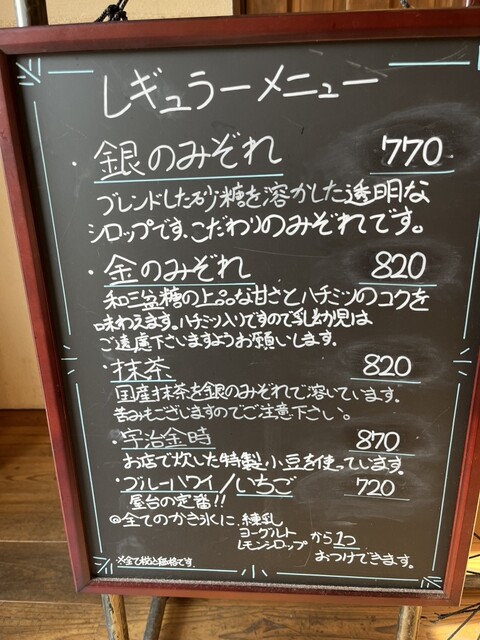 レギュラーメニュー
・銀のみぞれ 770
ブレンドした砂糖を溶かした透明な
シロップです。こだわりのみぞれです。
・金のみぞれ 820
和三盆糖の上品な甘さとハチミツのコクを
味わえます。ハチミツ入りですので乳幼児は
ご遠慮下さいますようお願いします。
・抹茶 820
国産抹茶を銀のみぞれで溶いています。
苦みもございますのでご注意下さい。
・宇治金時 870
お店で炊いた特製小豆を使っています。
・ブルーハワイ/いちご 720
屋台の定番!!
◎全てのかき氷に、練乳
ヨーグルト
レモンシロップ から1つ
おつけできます。
※全て税込価格です。